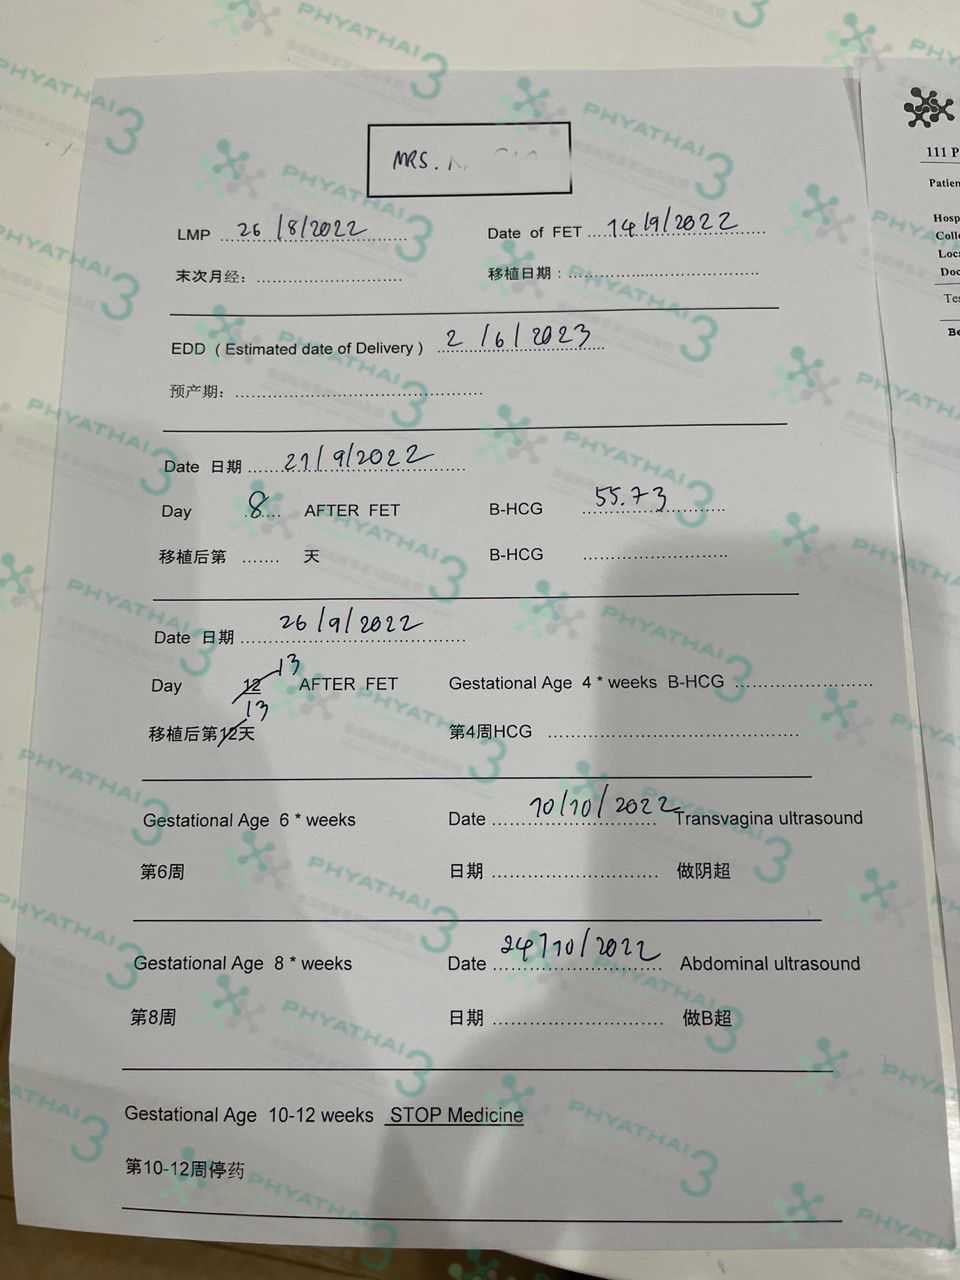 MRS.
LMP 26/8/2022 Date of FET 14/9/2022
末次月经: 移植日期:
EDD (Estimated date of Delivery) 2/6/2023
预产期:
Date 日期 21/9/2022
Day 8 AFTER FET B-HCG 55.73
移植后第 天 B-HCG
Date 日期 26/9/2022
13
Day 12 AFTER FET Gestational Age 4 * weeks B-HCG
13
移植后第12天 第4周HCG
Gestational Age 6 * weeks Date 10/10/2022 Transvagina ultrasound
第6周 日期 做阴超
Gestational Age 8 * weeks Date 24/10/2022 Abdominal ultrasound
第8周 日期 做B超
Gestational Age 10-12 weeks STOP Medicine
第10-12周停药
111 P
Patien
Hosp
Colle
Loca
Doc
Tes
Be
PHYATHAI 3